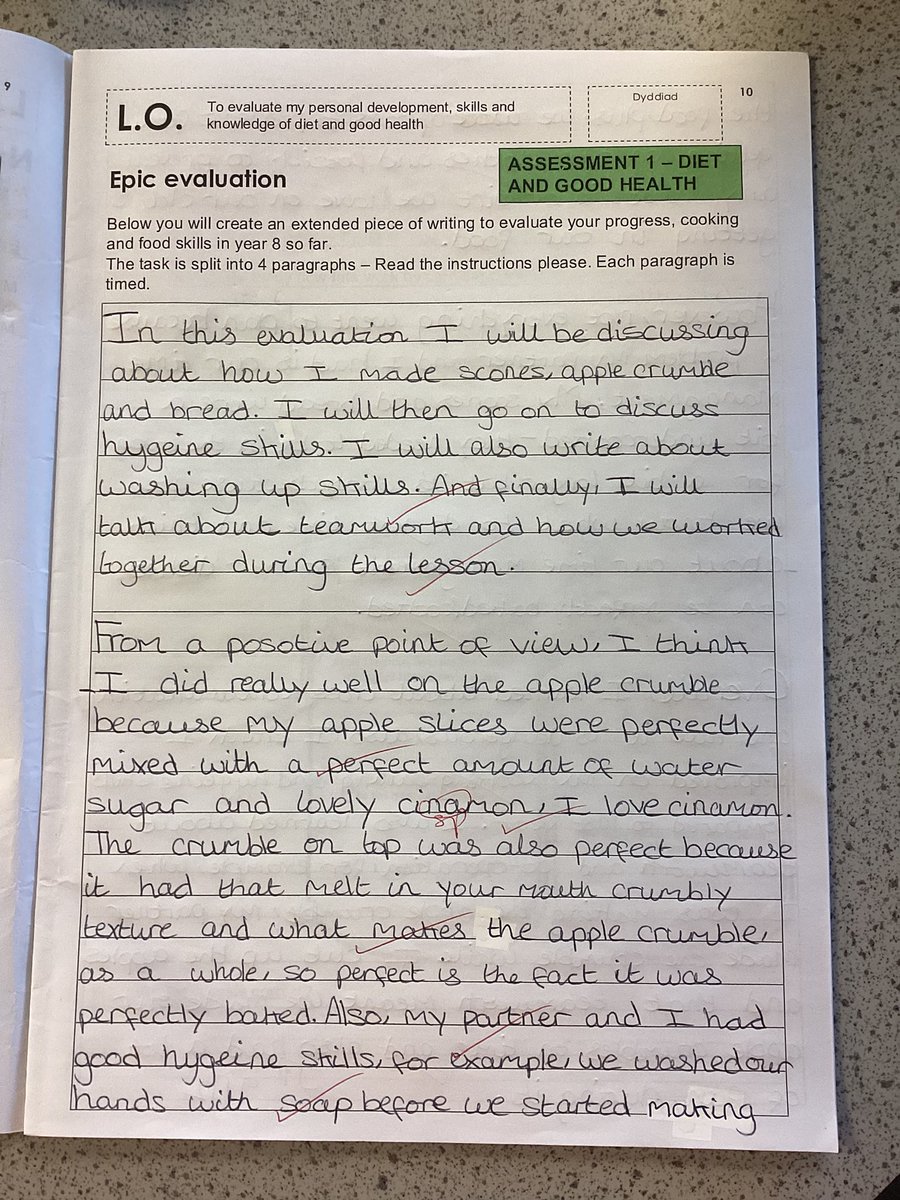 9
L.O.
To evaluate my personal development, skills and
knowledge of diet and good health
Dyddiad
10
Epic evaluation
ASSESSMENT 1 – DIET
AND GOOD HEALTH
Below you will create an extended piece of writing to evaluate your progress, cooking
and food skills in year 8 so far.
The task is split into 4 paragraphs – Read the instructions please. Each paragraph is
timed.
In this evaluation I will be discussing
about how I made scones, apple crumble
and bread. I will then go on to discuss
hygeine skills. I will also write about
washing up skills. And finally, I will
talk about teamwork and how we worked
together during the lesson.
From a posotive point of view, I think
I did really well on the apple crumble
because my apple slices were perfectly
mixed with a perfect amount of water
sugar and lovely cinamon, I love cinamon.
sp
The crumble on top was also perfect because
it had that melt in your mouth crumbly
texture and what makes the apple crumble,
as a whole, so perfect is the fact it was
perfectly baked. Also, my partner and I had
good hygeine skills, for example, we washed our
hands with soap before we started making